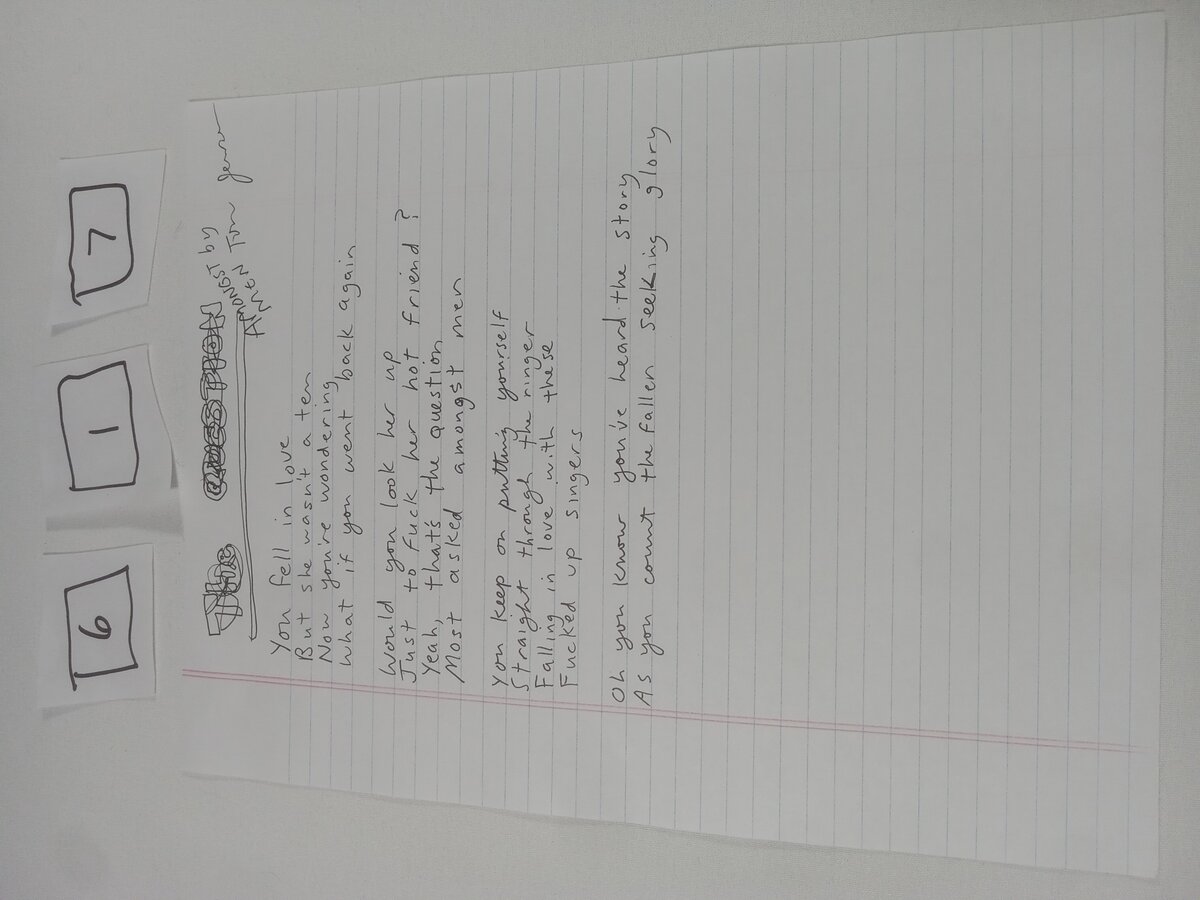 6 1 7
AMONGST by
MEN Tom
You fell in love
But she wasn't a ten
Now you're wondering
What if you went back again
Would you look her up
Just to fuck her hot friend?
Yeah, that's the question
Most asked amongst men
You keep on putting yourself
Straight through the ringer
Falling in love with these
Fucked up singers
Oh you know you've heard the story
As you count the fallen seeking glory